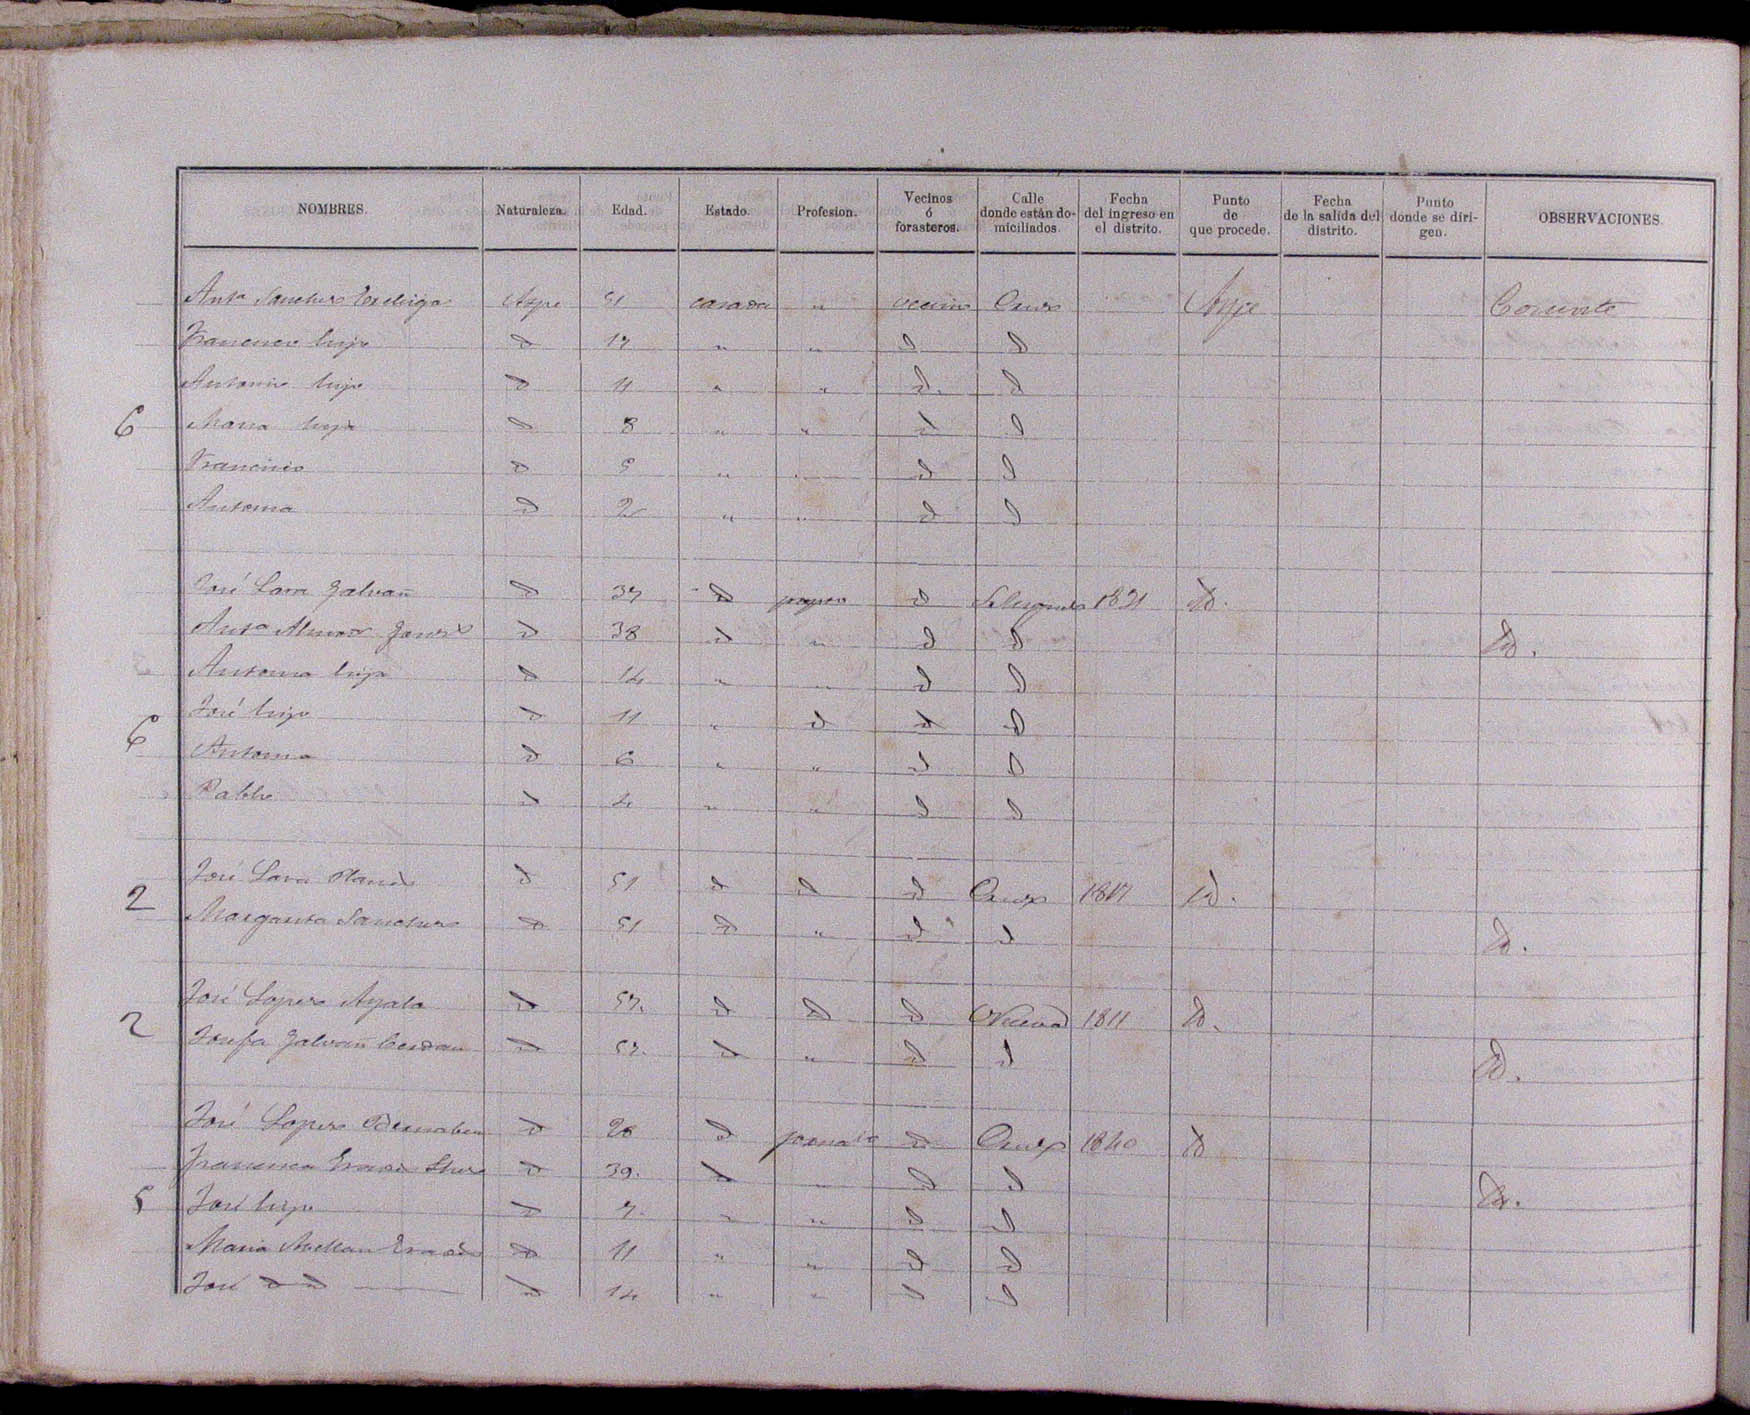 NOMBRES. Naturaleza. Edad. Estado. Profesion. Vecinos ó forasteros. Calle donde están domiciliados. Fecha del ingreso en el distrito. Punto de que procede. Fecha de la salida del distrito. Punto donde se dirigen. OBSERVACIONES.
Antª Sanchez Aspe 51 casada " vecino Cruz Aspe Consorte
Francisco hijo d 17 " " d d
Antonio hijo d 11 " " d. d
6 Maria hija d 8 " " d d
Francisco d 5 " " d d
Antonia d 2 " " d d
José Lara Galvañ d 37 d d 1821 Yd.
Antª d 38 d " d d Yd.
Antonia hija d 14 " " d d
6 José hijo d 11 " d d d
Antonia d 6 " " d d
Pablo d 4 " " d d
2 José Lara d 51 d d d Cruz Yd.
Margarita Sanchez d 51 d " d d Yd.
José Lopez Ayala d 57. d d d Nueva 1811 Yd.
2 Josefa Galvañ Cerdan d 57. d " d d Yd.
José Lopez Bernabeu d 28 d d Cruz 1840 Yd
Francisca d 39. d " d d Yd.
5 José hijo d 7. " " d d
Maria Avellan d 11 " " d d
José d d d 14 " " d d